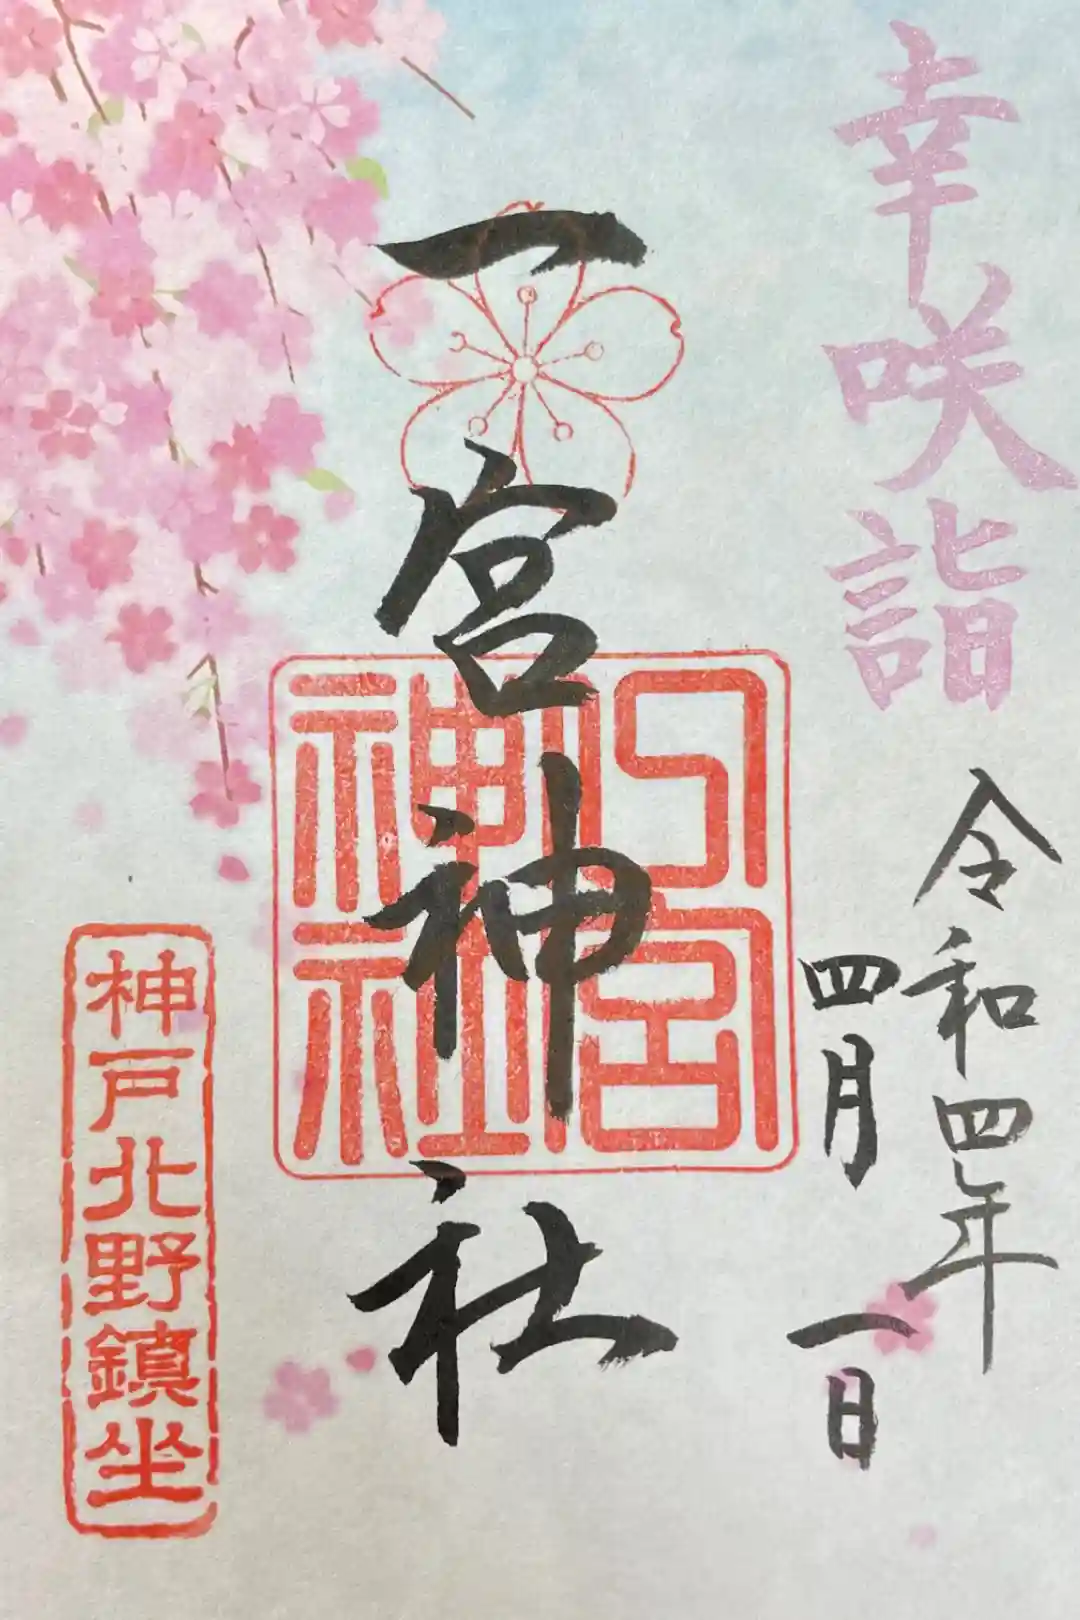 幸咲詣
令和四年
四月一日
一宮神社
一宮神社
神戸北野鎮坐